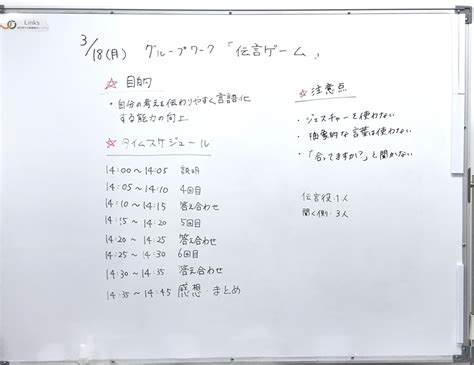 Links
3/18(月) グループワーク 「伝言ゲーム」
☆ 目的
・自分の考えを伝わりやすく言語化
する能力の向上
☆ タイムスケジュール
14:00 〜 14:05 説明
14:05 〜 14:10 4回目
14:10 〜 14:15 答え合わせ
14:15 〜 14:20 5回目
14:20 〜 14:25 答え合わせ
14:25 〜 14:30 6回目
14:30 〜 14:35 答え合わせ
14:35 〜 14:45 感想・まとめ
☆ 注意点
・ジェスチャーを使わない
・抽象的な言葉は使わない
・「合ってますか?」と聞かない
伝言役:1人
聞く側:3人